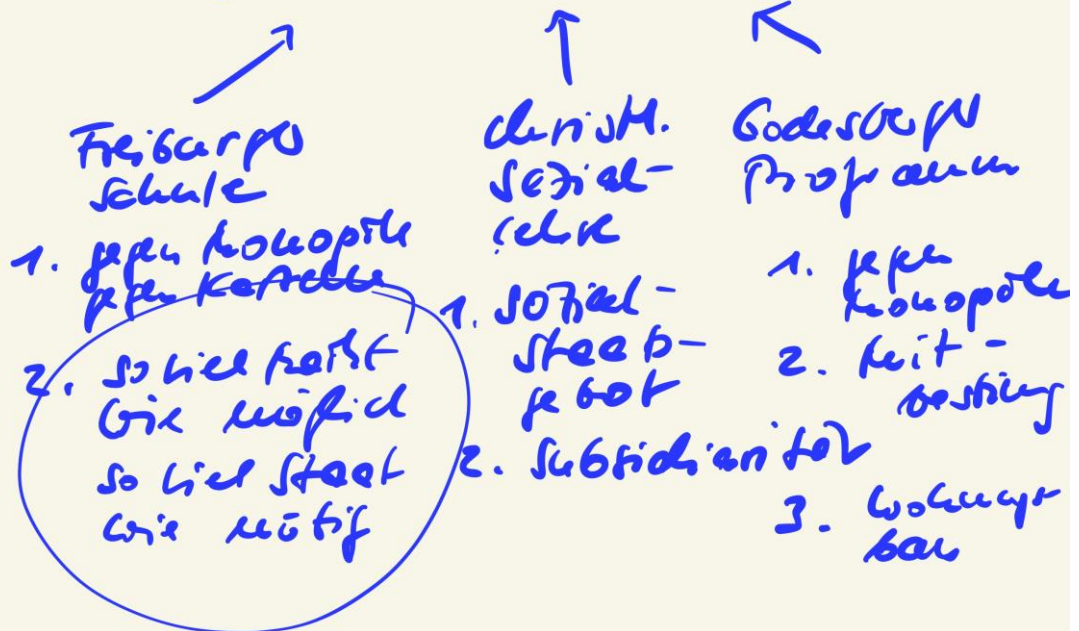 Freiburger
Schule
1. gegen Monopole
gegen Kartelle
2. so viel Markt
wie möglich
so viel Staat
wie nötig
christl.
Sozial-
lehre
1. Sozial-
staats-
gebot
2. Subsidiarität
Godesberger
Programm
1. gegen
Monopole
2. Mit-
bestimmung
3. Wohnungs
bau